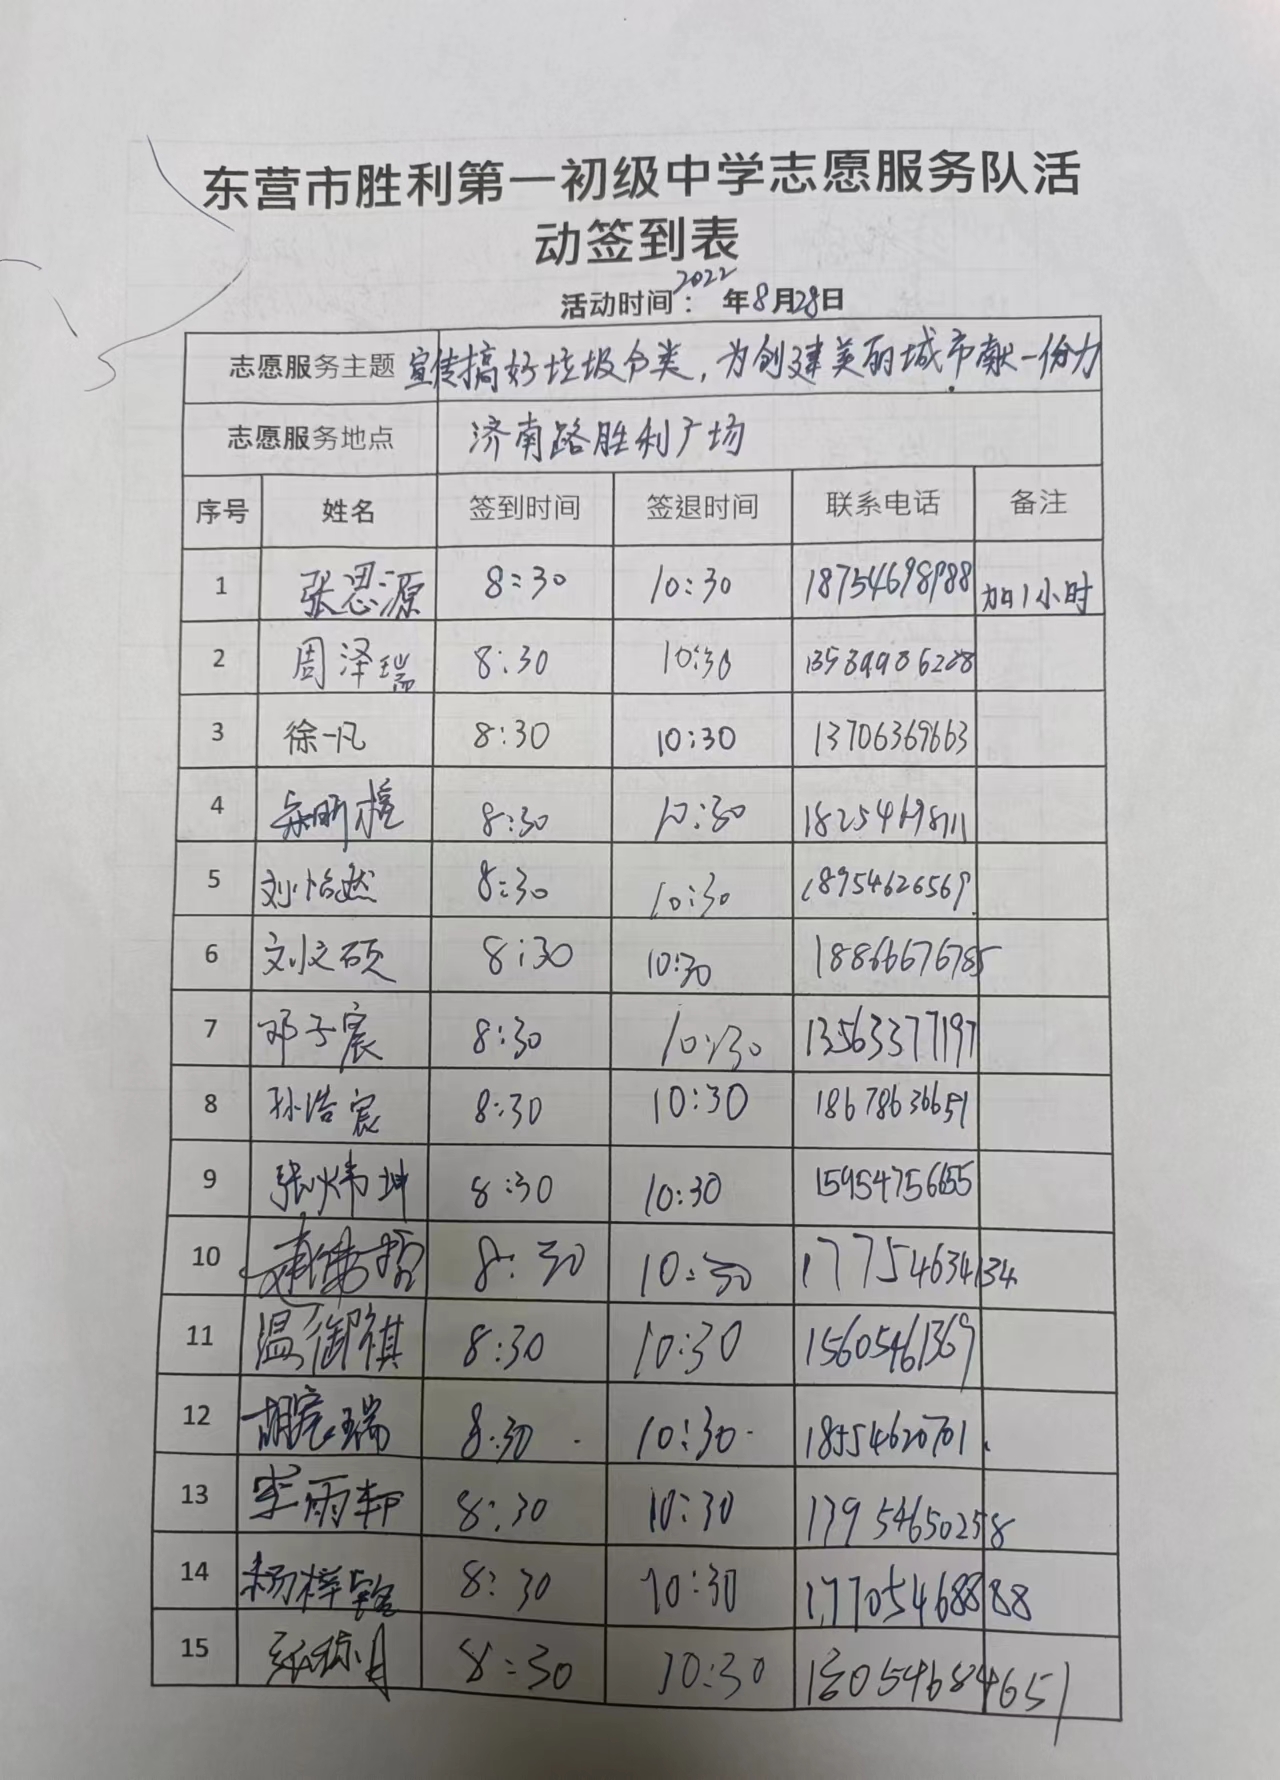 东营市胜利第一初级中学志愿服务队活
动签到表
活动时间：2022年8月28日
志愿服务主题 宣传搞好垃圾分类，为创建美丽城市献一份力
志愿服务地点 济南路胜利广场
序号 姓名 签到时间 签退时间 联系电话 备注
1 张思源 8:30 10:30 18754698988 加1小时
2 周泽瑞 8:30 10:30
3 徐一凡 8:30 10:30 13706369663
4 8:30 10:30
5 刘怡然 8:30 10:30 18954626569
6 刘文硕 8:30 10:30 18866676785
7 邓子宸 8:30 10:30 13563377197
8 孙浩宸 8:30 10:30 18678636651
9 张炜坤 8:30 10:30 15954756655
10 8:30 10:30 17754634134
11 温御祺 8:30 10:30 15605461369
12 胡宸瑞 8:30 10:30 18554620701
13 李雨轩 8:30 10:30 13954650258
14 杨梓铭 8:30 10:30 17705468888
15 8:30 10:30